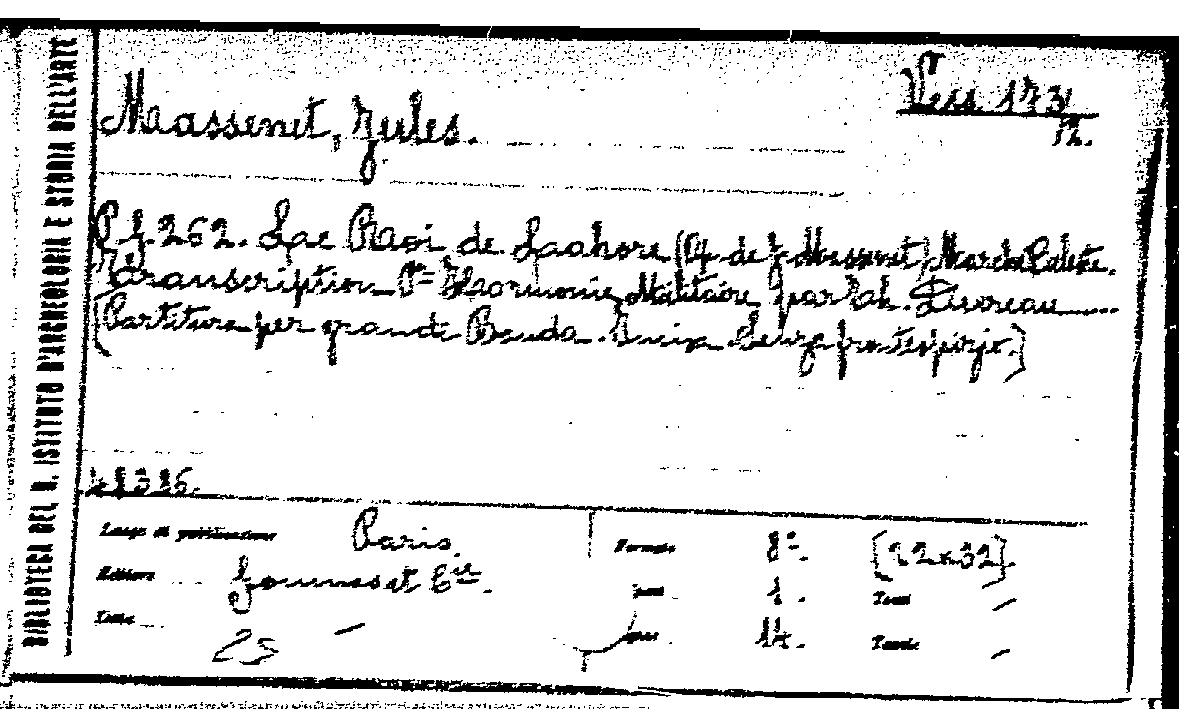 BIBLIOTECA DEL R. ISTITUTO D'ARCHEOLOGIA E STORIA DELL'ARTE
Massenet, Jules.
Vess. 173
12.
P. J. 262. Le Roi de Lahore (Op. de J. Massenet) Marche Céleste.
Transcription pr Harmonie Militaire par
(Partitura per grande Banda. Senza frontespizio.)
48386.
Luogo di pubblicazione Paris.
Editore et Cie.
Data —
25
Formato 8º. [22x32].
1. Tomi —
14. Tavole —